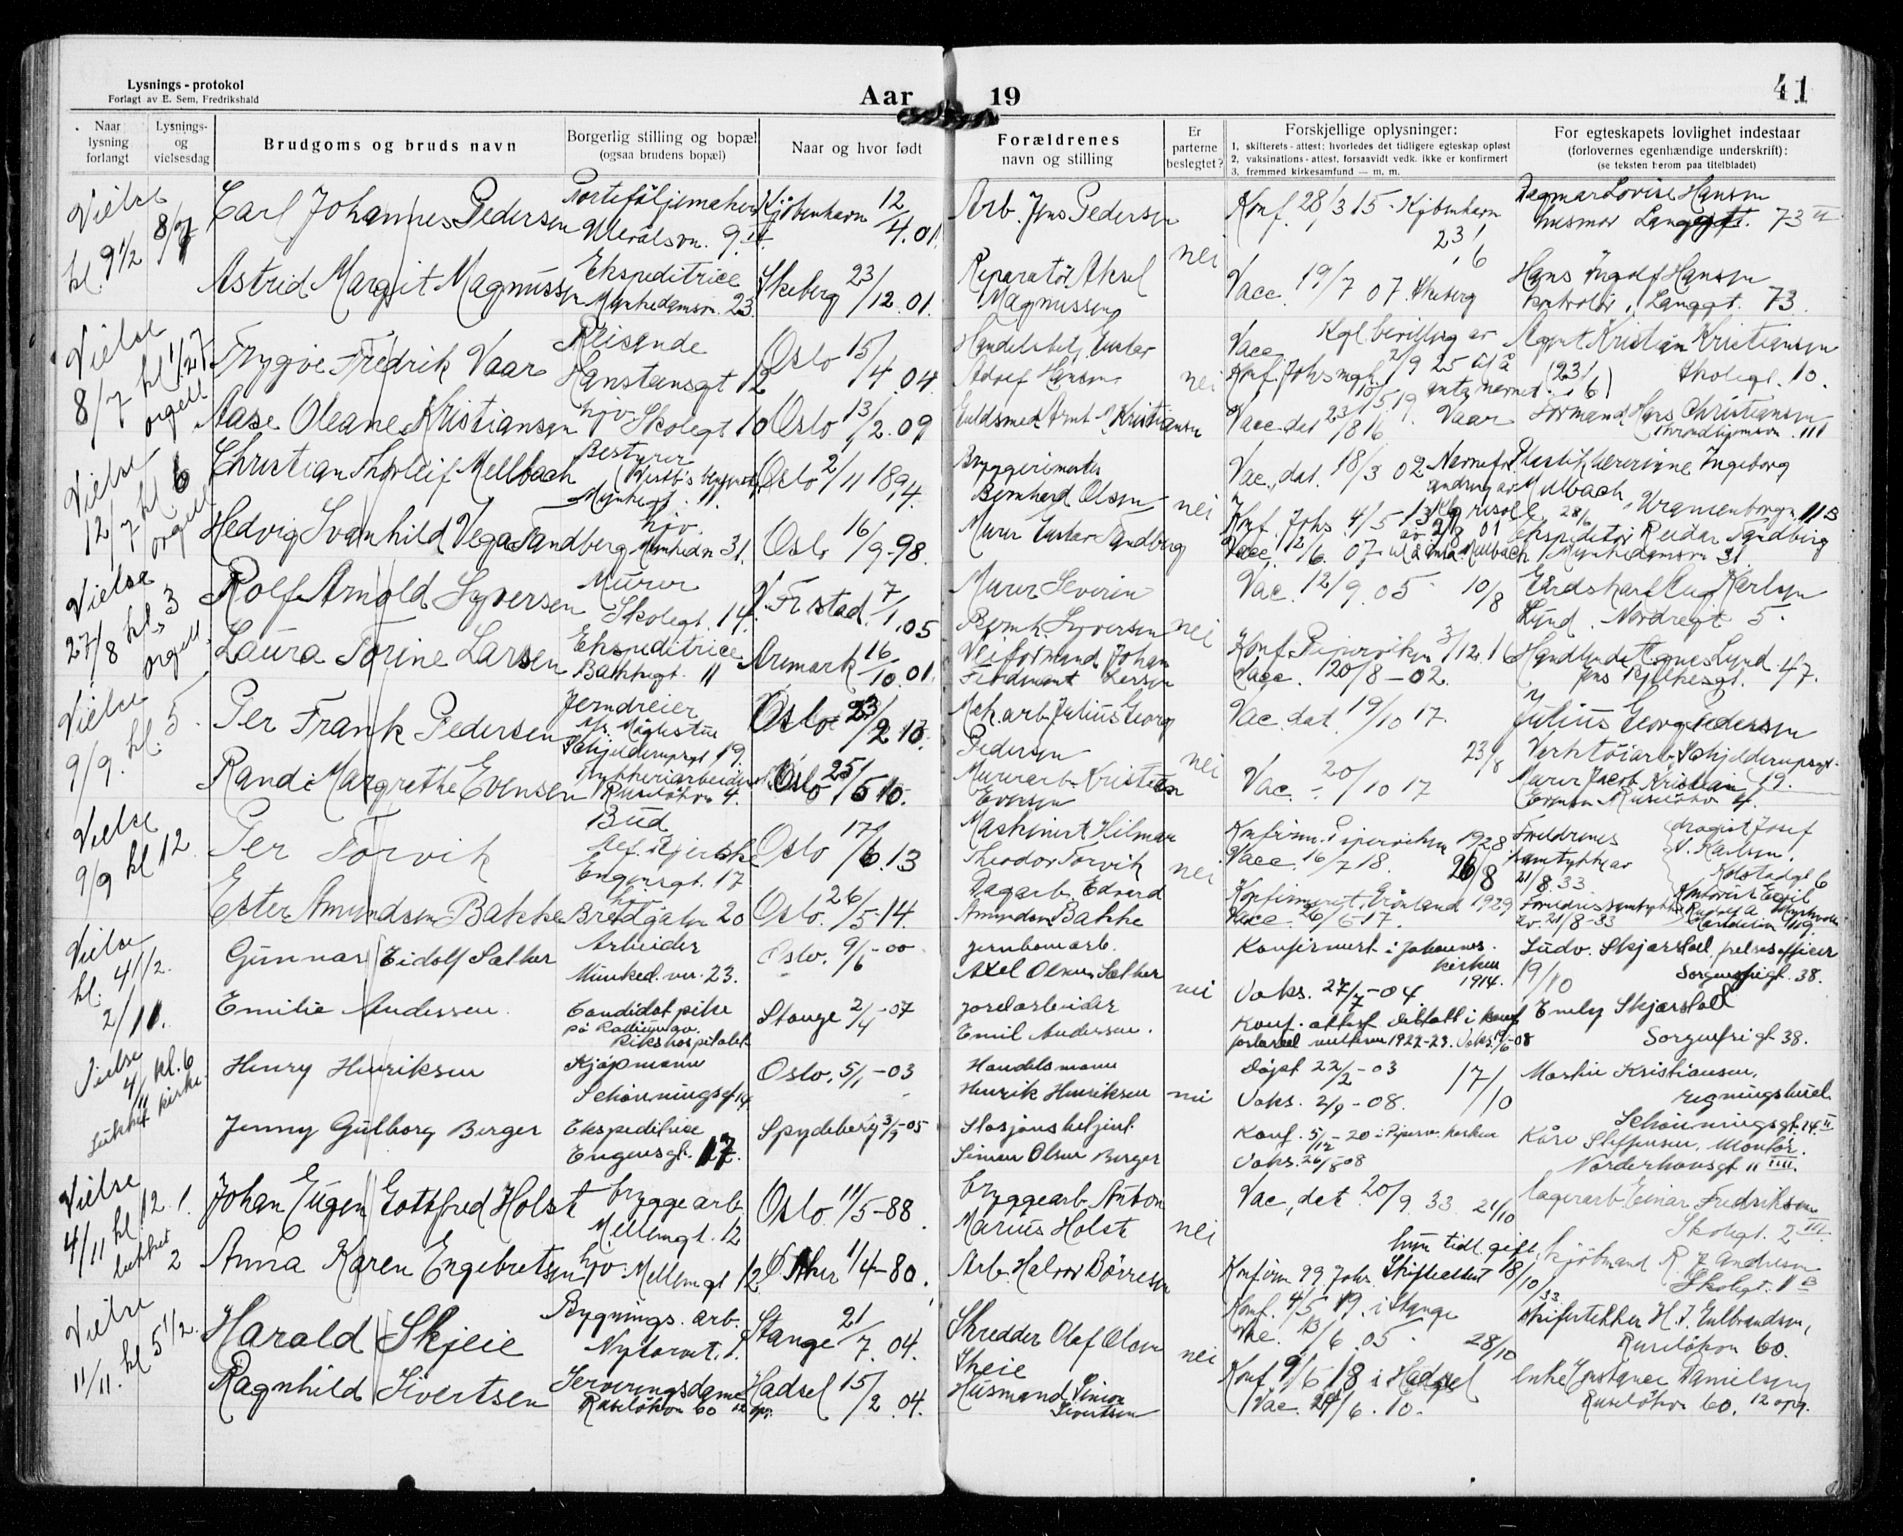 Lysnings - protokol
Forlagt av E. Sem, Fredrikshald
Aar 19
41
Naar lysning forlangt
Lysnings- og vielsesdag
Brudgoms og bruds navn
Borgerlig stilling og bopæl
(ogsaa brudens bopæl)
Naar og hvor født
Forældrenes
navn og stilling
Er parterne beslegtet?
Forskjellige oplysninger:
1. skifterets-attest: hvorledes det tidligere egteskap opløst
2. vaksinations-attest, forsaavidt vedk. ikke er konfirmert
3. fremmed kirkesamfund — m. m.
For egteskapets lovlighet indestaar
(forlovernes egenhændige underskrift):
(se teksten herom paa titelbladet)
Vielse 8/7
kl. 9 1/2
Carl Johannes Pedersen
Kjøbenhavn 12/4.01.
Arb. Jens Pedersen
Konf. 28/3 15 - Kjøbenhavn
23/6
nei
Dagmar Lovise Hansen
husmor Langgt. 73 II
Astrid Margit Magnussen
Ekspeditrice
Munkedamsv. 23.
Skeberg 23/12.01.
Reparatør Aksel
Magnussen
Vacc. 19/7 07 Skeberg
Hans Ingolf Hansen
kontrolør, Langgt. 73.
Vielse
8/7 kl 1/2 7
orgel
Trygve Fredrik Vaar
Reisende
Hanstensgt 12
Oslo 15/4.04
Adolf Hansen
nei
Kgl. bevilling av
2/9 25 til å
anta navnet
Vaar
(23/6)
Agent Kristian Kristiansen
Skolegt. 10.
Aase Oleane Kristiansen
hjv. Skolegt 10
Oslo 13/2.09
Guldsmed Arnt M. Kristiansen
Vacc. dat 23/8 16
Formand Hans Christiansen
Trondhjemsvn. 111
Vielse
12/7 kl 6
orgel
Christian Thorleif Mellbach
Bestyrer
Munkegt. 11.
Oslo 2/11 1894.
Bernhard Olsen
nei
Vac. dat. 18/3 02
Konf. Johs 4/5 13
Ingeborg
Mellbach, Uranienborgv. 11 B
Hedvig Svanhild Vega Sandberg
hjv.
Munkedn 31.
Oslo 16/9-98.
Murer Gustav Sandberg
Vacc. 12/6. 07
Ekspeditør Reidar Sandberg
Munkedamsvn 31
Vielse
27/8 kl. 3
orgel.
Rolf Arnold Syversen
Murer
Skolegt. 14.
Fr.stad 7/1.05
Murer Severin
Bernh. Syversen
nei
Vac. 12/9. 05
10/8
Lund. Nordregt 5.
Laura Torine Larsen
Ekspeditrice
Bakkegt. 11
Aremark 16/10.01.
Veiformand Johan
Larsen
Konf. Piperviken 3/12.1
Vacc. 20/8-02.
Agnes Lund
Jens Bjelkesgt. 47.
Vielse
9/9. kl. 5.
Per Frank Pedersen
Jerndreier
Schjelderupsgt 19.
Oslo 23/2 10.
Mek.arb. Julius Georg
Pedersen
nei
Vac. dat. 19/10 17.
23/8
Julius Georg Pedersen
Verktøiarb. Schjelderupsgt.
19.
Randi Margrethe Evensen
Trykkeriarbeider
Ruseløkvn 4.
Oslo 25/5 10.
Murerarb. Kristian
Evensen
Vac. 20/10 17
Murer Jacob Kristian
Evensen Ruseløkvn 4.
Vielse
9/9 kl 12
Per Torvik
Bud
Engensgt. 17
Oslo 17/6.13
Maskinist Hilmar
Theodor Torvik
nei
Konfirm. Piperviken 1928
Vacc. 16/7 18.
26/8
Foreldrenes
samtykke av
21/8.33
drogist Josef
V. Karlsen.
Kolstadgt 6
Ester Amundsen Bakke
Bredtgaten 20
Oslo. 26/5-14.
Dagarb. Edvard
Amundsen Bakke
Konfirmert, Grønland 1929
Vacc. 26/6-17.
av 21/8-33
Vielse
kl. 4 1/2.
2/11.
Gunnar Eidolf Sæther
Arbeider
Munked.vn. 23.
Oslo. 9/6-00
jernbanearb.
Axel Olsen Sæther
nei
Konfirmert i Johannes-
kirken
1914.
Vaks. 27/7-04
Ludv. Skjærstad, frelsesofficer
19/10
Sorgenfrigt. 38.
Emilie Andersen.
Candidatpike
på Radiumav.
Rikshospitalet
Stange 2/4-07
jordarbeider
Emil Andersen.
Emely Skjærstad
Sorgenfrigt 38.
Vielse
4/11 kl. 6
lukket kirke.
Henry Henriksen
Kjøpmann
Schønningsgt 14
Oslo. 5/1-03
Handelsmann
Henrik Henriksen
nei
Døpt 22/2-03
Vaks. 2/9-08.
17/10
Martin Kristiansen,
Schønningsgt. 14. II
Jenny Gulborg Berger
Ekspeditrise
Engensgt. 17.
Spydeberg 3/9-05
Stasjonsbetjent
Simen Olsen Berger
Konf. 5/12-20 i Piperv. kirken
Vaks. 26/8-08
Kåre Steffensen, Montør.
Norderhovsgt 11 IIII.
Vielse
4/11 kl 12.1.
lukket 2
Johan Eugen Gottfred Holst
bryggearb.
Mellemgt. 12
Oslo. 11/5-88.
bryggearb. Anton
Marius Holst
nei
Vac. det. 20/9 33
21/10
lagerarb. Einar Fredriksen
Skolegt. 2 III.
Anna Karen Engebretsen
hjv. Mellemgt 12
Ø. Aker 1/4-80.
Arb. Halvor Børresen
hun tidl. gift,
Skifteattest 18/10 33
R. J. Andresen
Skolegt. 1 B
Vielse
11/11. kl 5 1/2.
Harald Skjeie
Bygnings. arb.
Nytorvet. 1.
Stange 21/7. 04.
Skredder Olaf Olsen
Skeie
nei
Konf. 4/5 19. i Stange
Vac. 13/6. 05
28/10
Skifertekker H. J. Gulbrandsen,
Ruseløkvn 60.
Ragnhild Sivertsen
Serveringsdame
Ruseløkvn 60 12 opg.
Hadsel 15/2. 04.
Husmand Simon
Sivertsen
Konf. 9/6 18 i Hadsel
Vac. 24/6. 10.
Enke Jostanse Danielsen
Ruseløkvn 60. 12 opg.